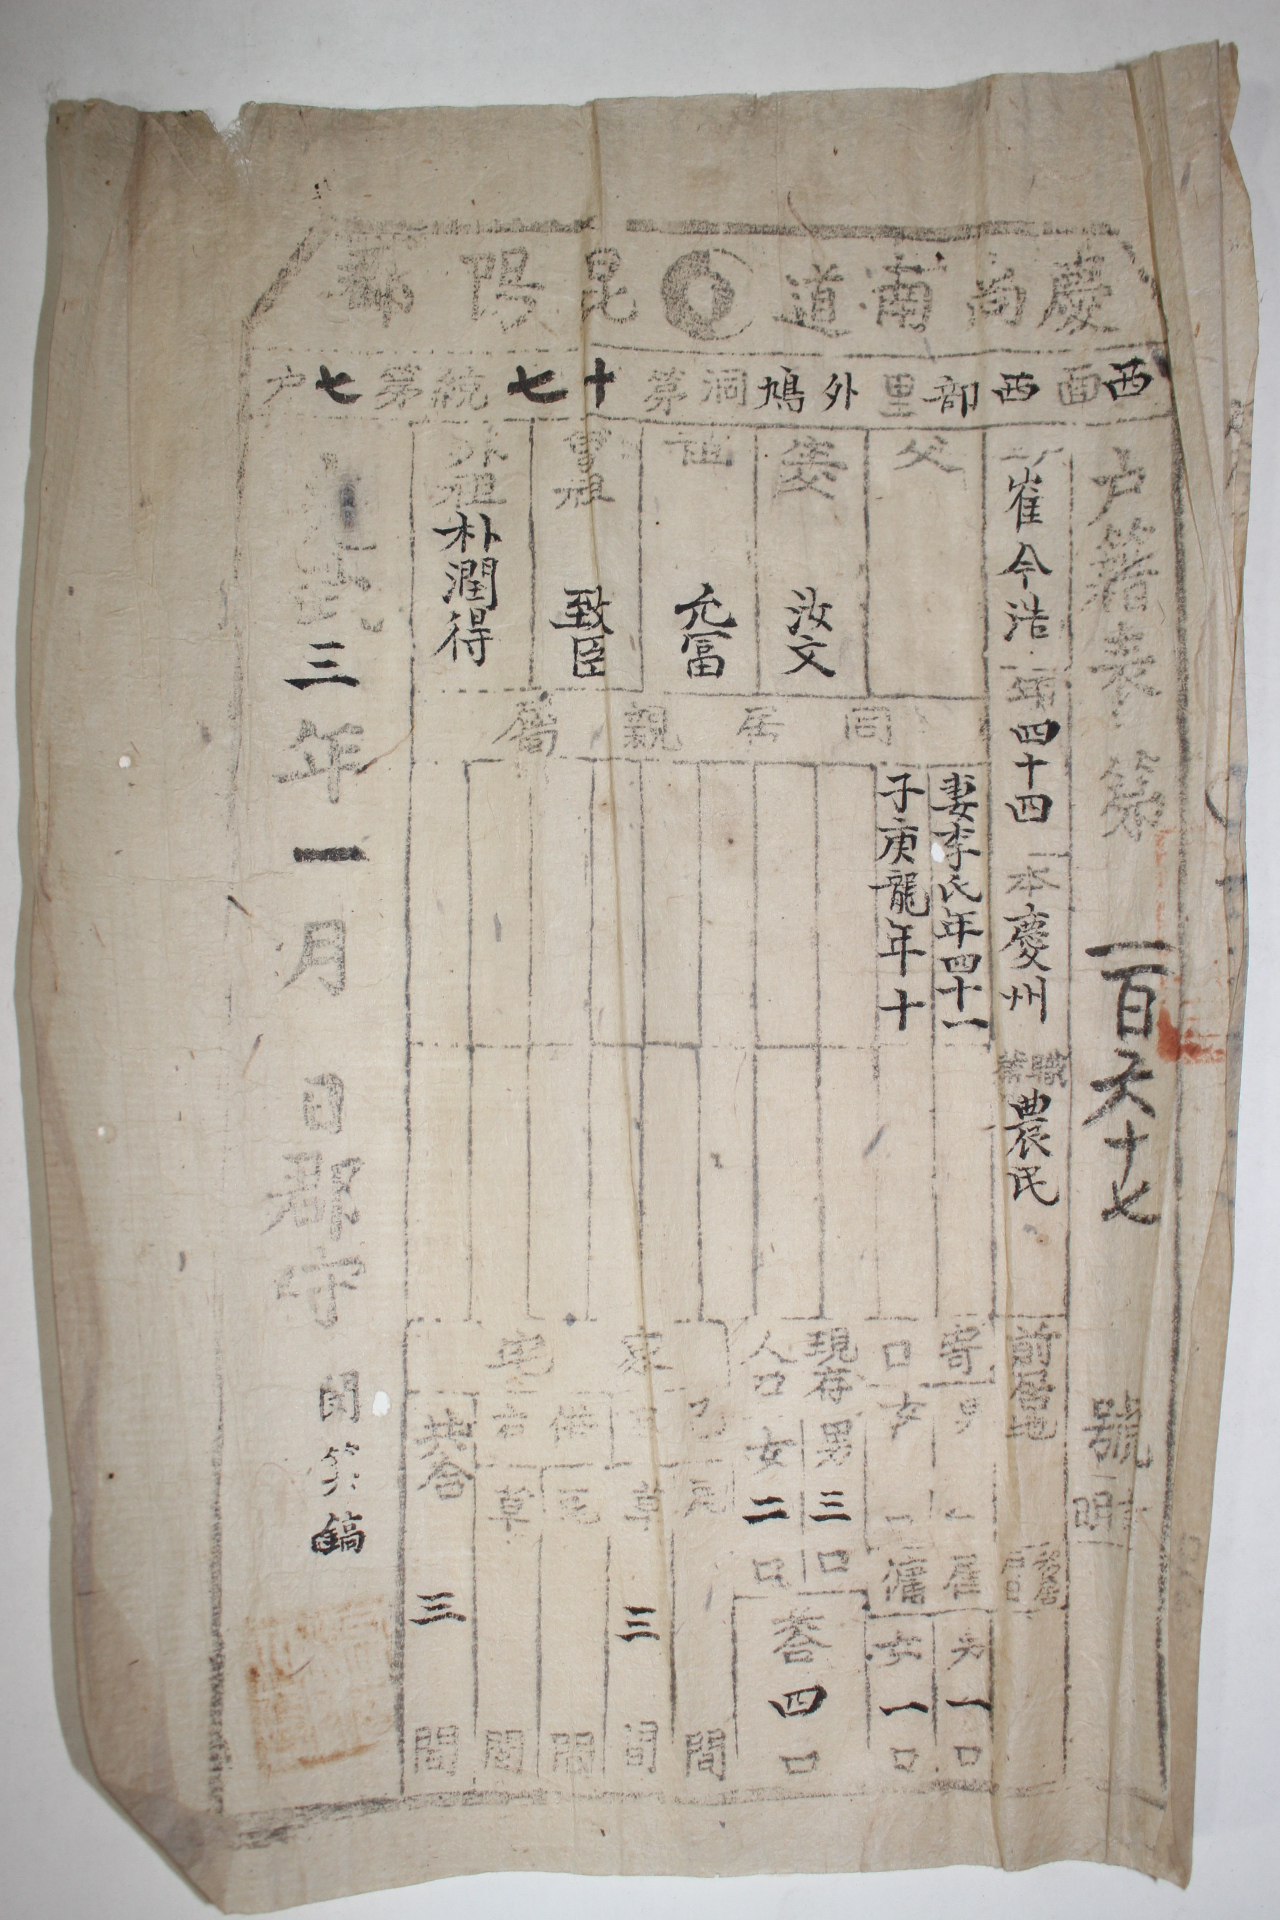 慶尚南道昆陽郡
西面西部里外鳩洞第十七統第七戶
戶籍表第一百六十七號
崔今浩
年四十四
本慶州
職業農民
前居地
父
汝文
允富
曾祖致臣
外祖朴潤得
同居親屬
妻李氏年四十一
子庚龍年十
寄口
男
女
雇傭
男一口
女一口
現存人口
男三口
女二口
共合四口
家宅
己瓦間
草三間
借瓦間
草間
共合三間
光武三年一月日郡守